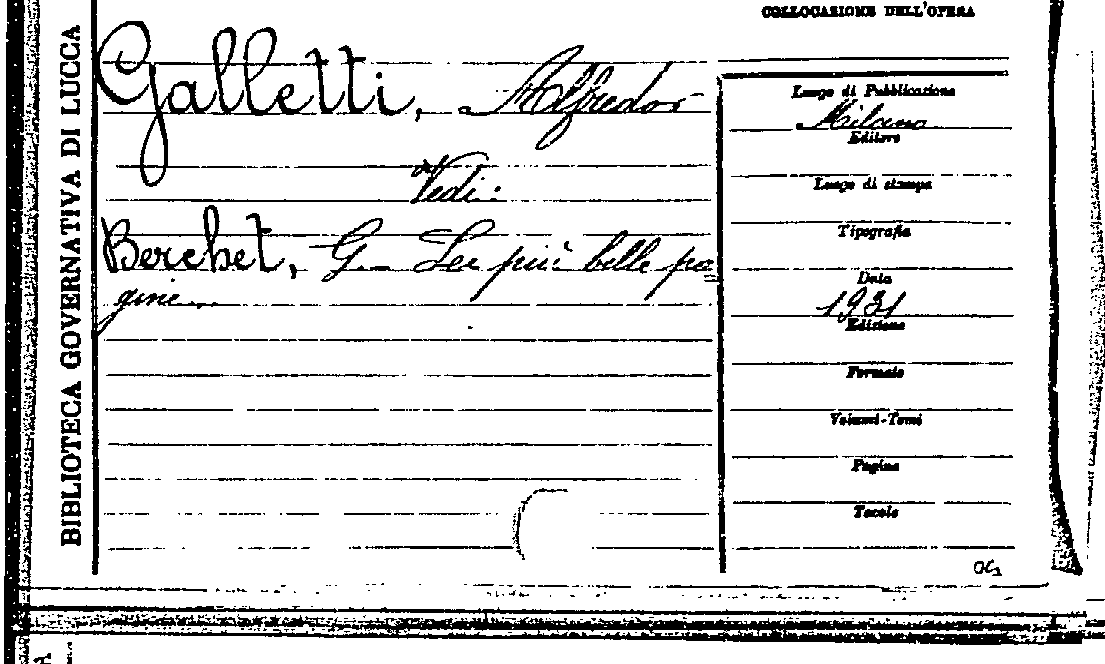 COLLOCAZIONE DELL'OPERA
BIBLIOTECA GOVERNATIVA DI LUCCA
Galletti, Alfredo
Vedi:
Berchet, G. Le più belle pa=
gine...
Luogo di Pubblicazione
Milano
Editore
Luogo di stampa
Tipografia
Data
1931
Edizione
Formato
Volumi-Tomi
Pagine
Tavole